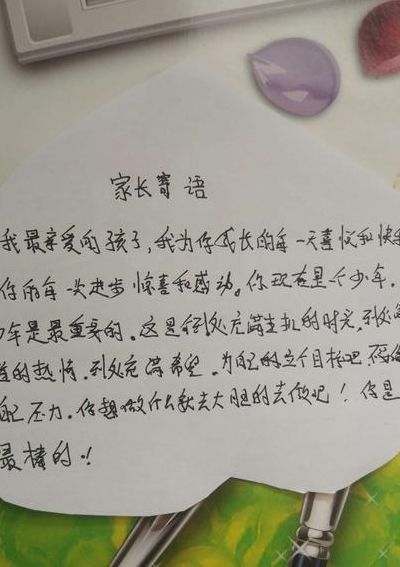 家长寄语
我最亲爱的孩子,我为你成长的每一天喜悦和快
你的每一次进步惊喜和感动。你现在是一个少年,
少年是最重要的。这是到处充满生机的时光,到处
的热情,到处充满希望。为自己的立个目标吧
自己压力。你想做什么就去大胆的去做吧!你是
最棒的!